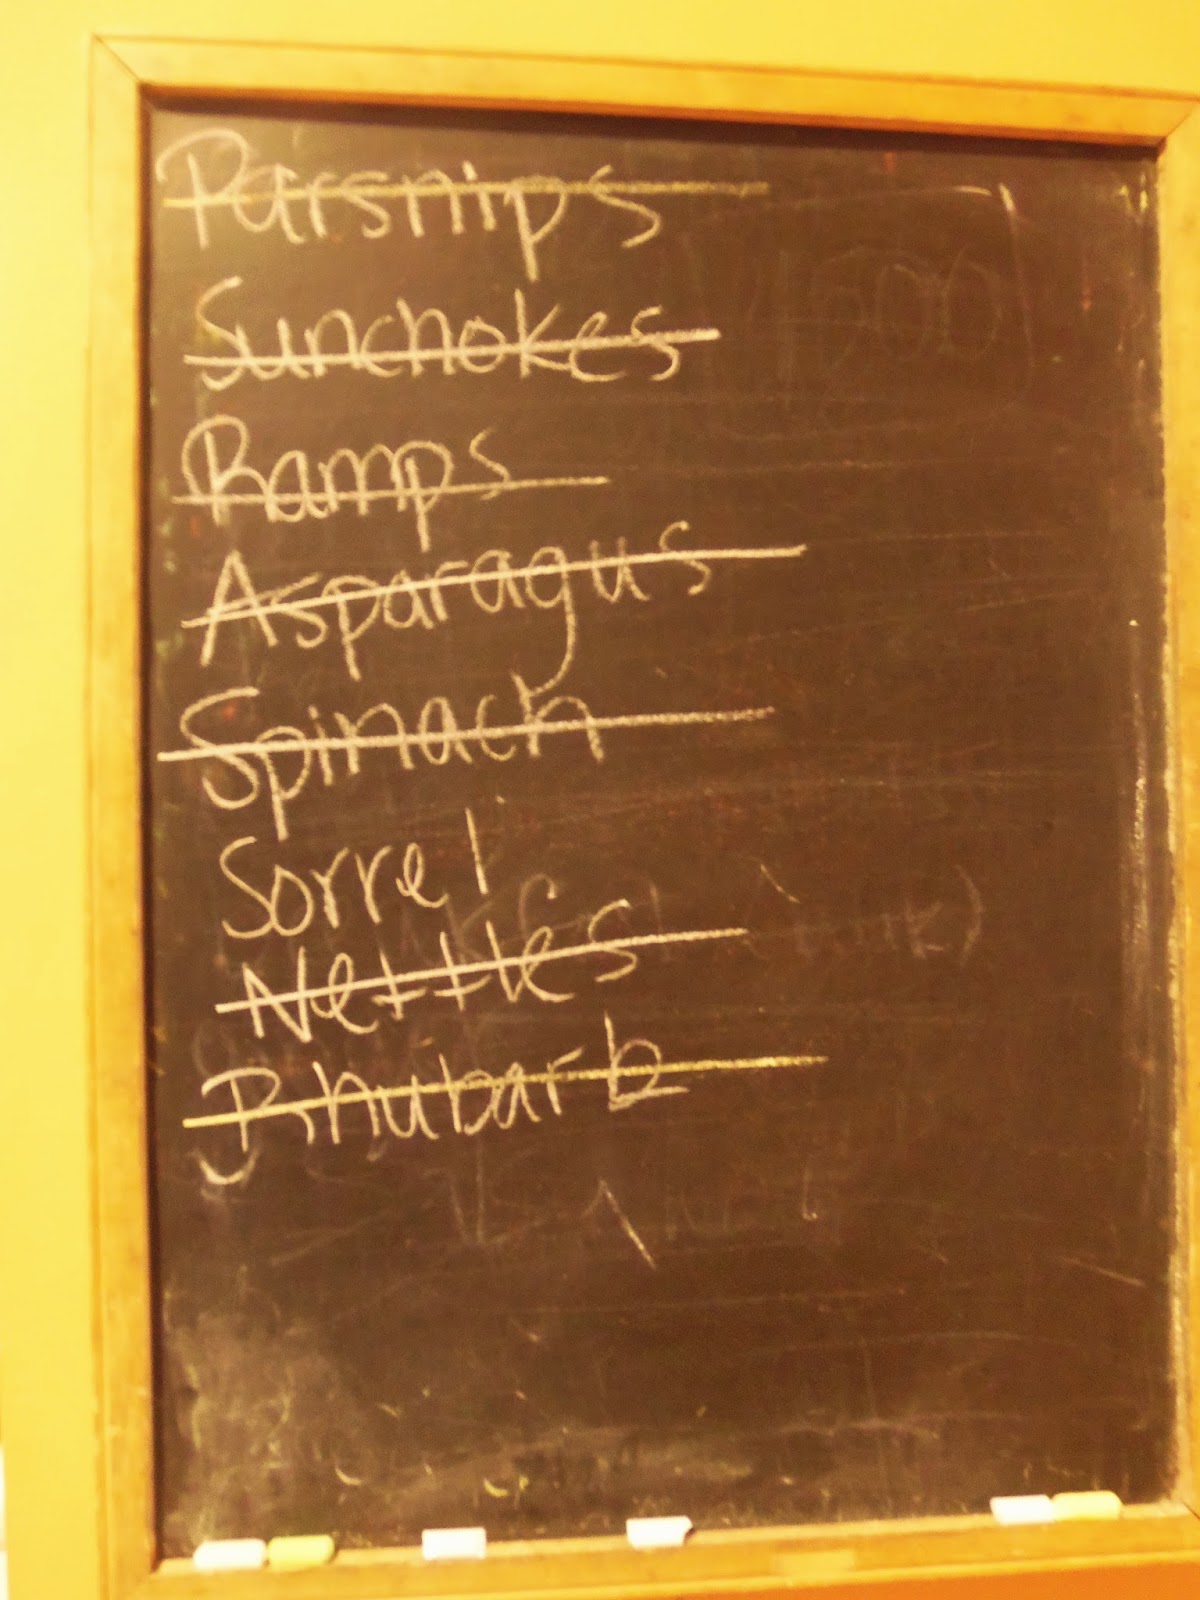 Parsnips
Sunchokes
Ramps
Asparagus
Spinach
Sorrel
Nettles
Rhubarb